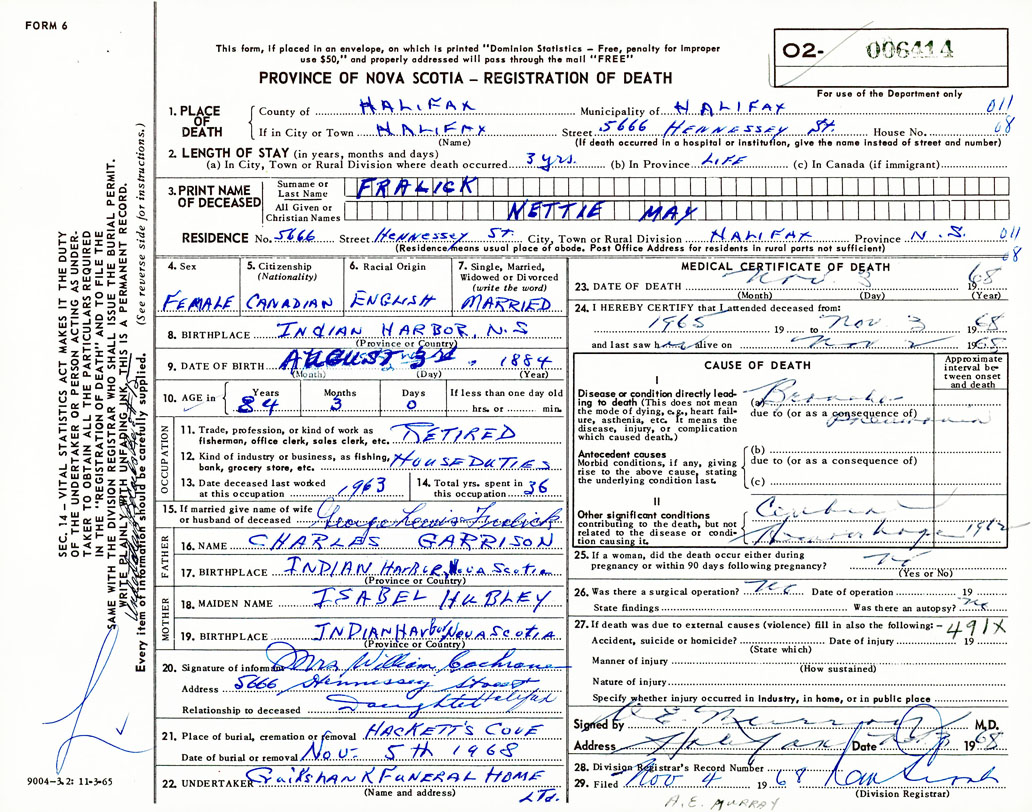 FORM 6
This form, if placed in an envelope, on which is printed "Dominion Statistics – Free, penalty for improper
use $50," and properly addressed will pass through the mail "FREE"
PROVINCE OF NOVA SCOTIA – REGISTRATION OF DEATH
O2- 006414
For use of the Department only
1. PLACE OF DEATH
County of HALIFAX Municipality of HALIFAX 011
If in City or Town HALIFAX Street 5666 HENNESSEY St. House No. 68
(Name) (If death occurred in a hospital or institution, give the name instead of street and number)
2. LENGTH OF STAY (in years, months and days)
(a) In City, Town or Rural Division where death occurred 3 yrs. (b) In Province LIFE (c) In Canada (if immigrant)
3. PRINT NAME OF DECEASED
Surname or Last Name FRALICK
All Given or Christian Names NETTIE MAY
RESIDENCE No. 5666 Street Hennessey St. City, Town or Rural Division HALIFAX Province N.S. 011
(Residence means usual place of abode. Post Office Address for residents in rural parts not sufficient) 68
4. Sex
FEMALE
5. Citizenship
(Nationality)
CANADIAN
6. Racial Origin
ENGLISH
7. Single, Married,
Widowed or Divorced
(write the word)
MARRIED
8. BIRTHPLACE INDIAN HARBOR, N.S
(Province or Country)
9. DATE OF BIRTH AUGUST 3rd, 1884
(Month) (Day) (Year)
10. AGE in Years 84 Months 3 Days 0 If less than one day old
hrs. or min.
OCCUPATION
11. Trade, profession, or kind of work as
fisherman, office clerk, sales clerk, etc. RETIRED
12. Kind of industry or business, as fishing,
bank, grocery store, etc. HOUSEDUTIES
13. Date deceased last worked
at this occupation 1963
14. Total yrs. spent in
this occupation 36
15. If married give name of wife
or husband of deceased George Lewis Fralick
FATHER
16. NAME CHARLES GARRISON
17. BIRTHPLACE INDIAN HARBOR, Nova Scotia
(Province or Country)
MOTHER
18. MAIDEN NAME ISABEL HUBLEY
19. BIRTHPLACE INDIAN Harbor NOVA SCOTIA
(Province or Country)
20. Signature of informant Mrs William Cochrane
Address 5666 Hennessey Street
Relationship to deceased Daughter Halifax
21. Place of burial, cremation or removal HACKETT'S COVE
Date of burial or removal Nov. 5th 1968
22. UNDERTAKER Cruikshank FUNERAL HOME
(Name and address) LTD.
MEDICAL CERTIFICATE OF DEATH
23. DATE OF DEATH Nov. 3 1968
(Month) (Day) (Year)
24. I HEREBY CERTIFY that I attended deceased from:
1965 19 to Nov 3 1968
and last saw alive on Nov 2 1968
CAUSE OF DEATH
Approximate interval between onset and death
I
Disease or condition directly leading
to death (This does not mean
the mode of dying, e.g., heart failure,
asthenia, etc. It means the
disease, injury, or complication
which caused death.)
(a) Broncho
due to (or as a consequence of)
pneumonia
Antecedent causes
Morbid conditions, if any, giving
rise to the above cause, stating
the underlying condition last.
(b)
due to (or as a consequence of)
(c)
II
Other significant conditions
contributing to the death, but not
related to the disease or condition
causing it.
1962
25. If a woman, did the death occur either during
pregnancy or within 90 days following pregnancy? No
(Yes or No)
26. Was there a surgical operation? No Date of operation 19
State findings Was there an autopsy? No
27. If death was due to external causes (violence) fill in also the following: – 491X
Accident, suicide or homicide? Date of injury 19
(State which)
Manner of injury
(How sustained)
Nature of injury
Specify whether injury occurred in Industry, in home, or in public place
Signed by A E Murray M.D.
Address Halifax Date 1968
28. Division Registrar's Record Number
29. Filed Nov 4 1968
(Division Registrar)
A.E. MURRAY
9004-3.2: 11-3-65
SEC. 14 – VITAL STATISTICS ACT MAKES IT THE DUTY
OF THE UNDERTAKER OR PERSON ACTING AS UNDERTAKER
TO OBTAIN ALL THE PARTICULARS REQUIRED
IN THE "REGISTRATION OF DEATH" AND TO FILE THE
SAME WITH THE DIVISION REGISTRAR WHO SHALL ISSUE THE BURIAL PERMIT.
WRITE PLAINLY WITH UNFADING INK. THIS IS A PERMANENT RECORD.
Every item of information should be carefully supplied. (See reverse side for instructions.)